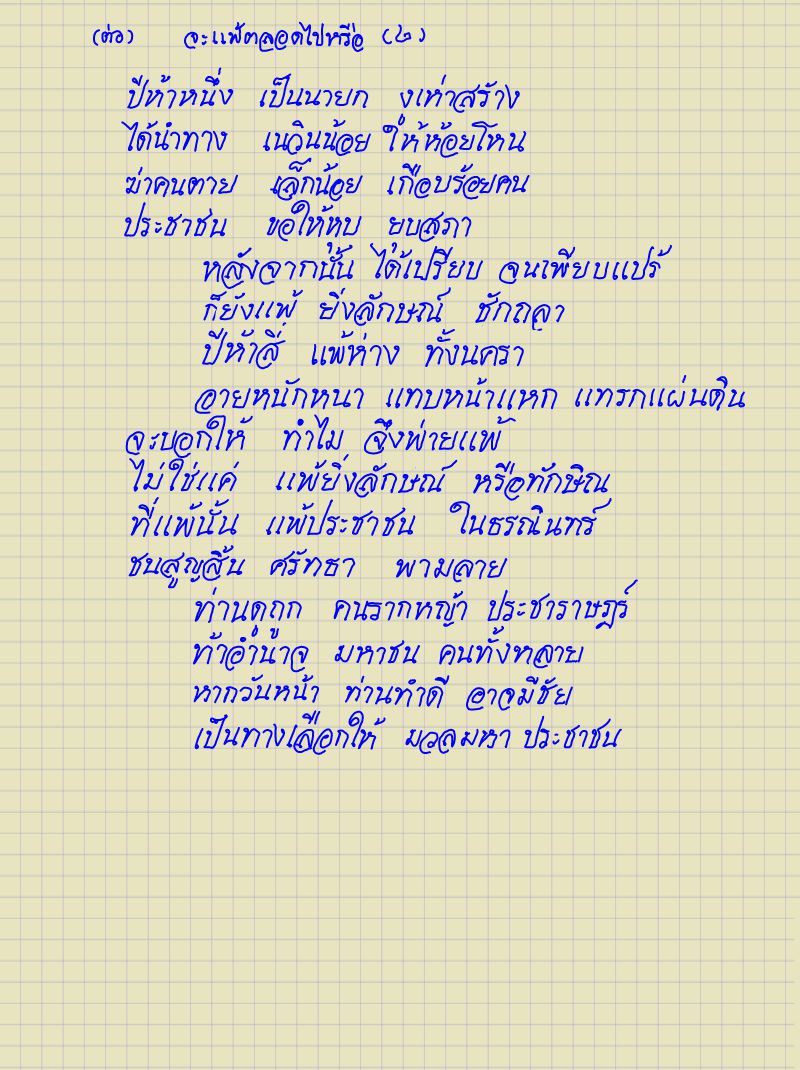 (ต่อ) จะแพ้ตลอดไปหรือ (๒)
ปีห้าหนึ่ง เป็นนายก งูเห่าสร้าง
ได้นำทาง เนวินน้อย ให้ห้อยโหน
ฆ่าคนตาย เล็กน้อย เกือบร้อยคน
ประชาชน ขอให้หุบ ยุบสภา
หลังจากนั้น ได้เปรียบ จนเพียบแปร้
ก็ยังแพ้ ยิ่งลักษณ์ ชักถลา
ปีห้าสี่ แพ้ห่าง ทั้งนครา
อายหนักหนา แทบหน้าแหก แทรกแผ่นดิน
จะบอกให้ ทำไม จึงพ่ายแพ้
ไม่ใช่แค่ แพ้ยิ่งลักษณ์ หรือทักษิณ
ที่แพ้นั้น แพ้ประชาชน ในธรณินทร์
ชนสูญสิ้น ศรัทธา พามลาย
ท่านดูถูก คนรากหญ้า ประชาราษฎร์
ท้าอำนาจ มหาชน คนทั้งหลาย
หากวันหน้า ท่านทำดี อาจมีชัย
เป็นทางเลือกให้ มวลมหา ประชาชน